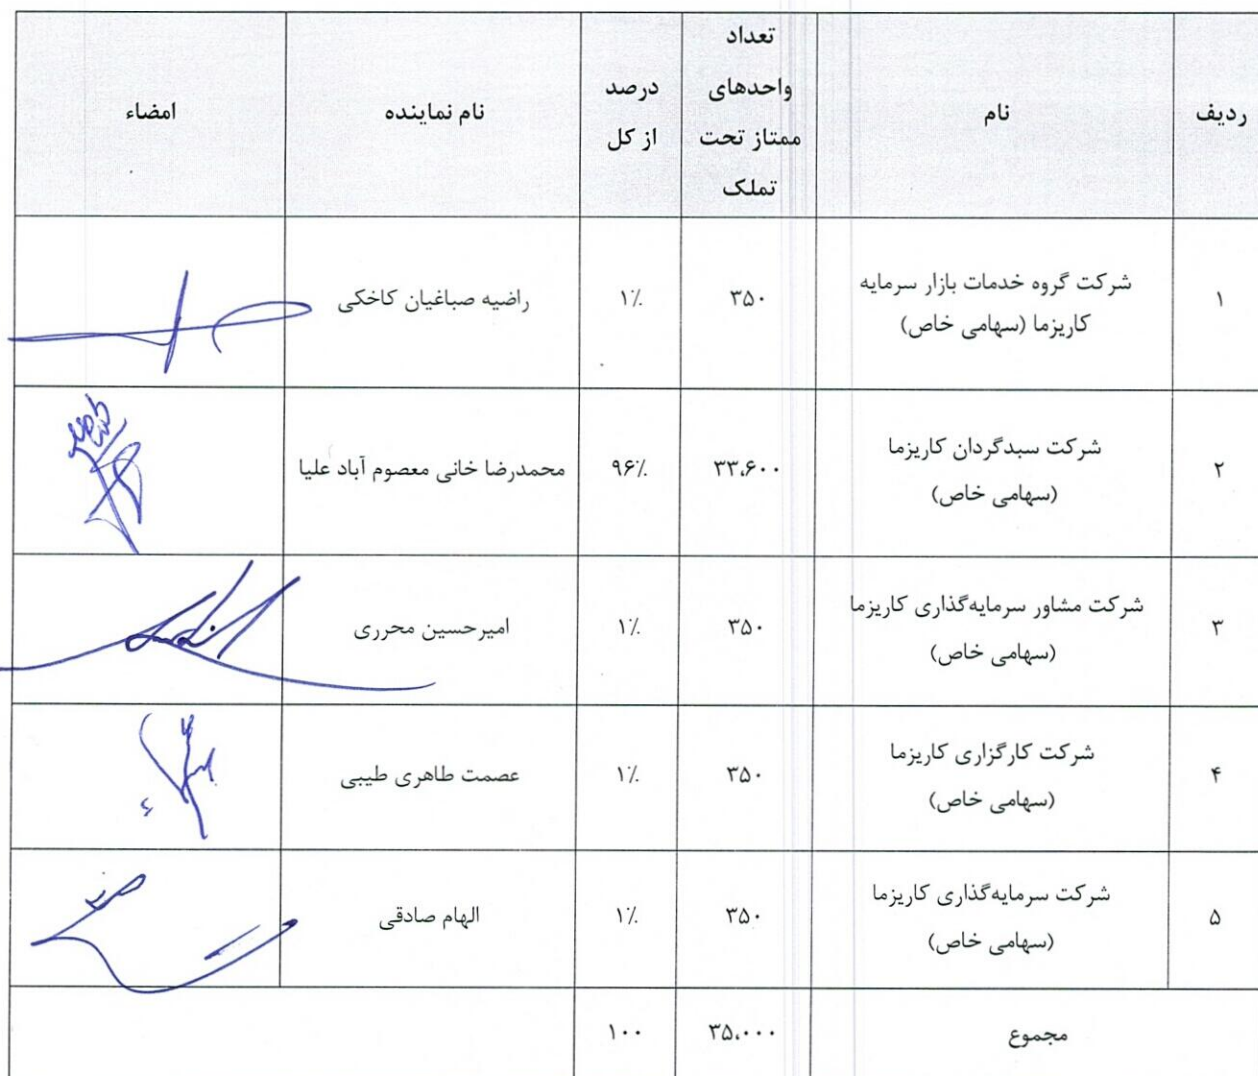 ردیف
نام
تعداد
واحدهای
ممتاز تحت
تملک
درصد
از کل
نام نماینده
امضاء
۱
شرکت گروه خدمات بازار سرمایه
کاریزما (سهامی خاص)
۳۵۰
۱٪
راضیه صباغیان کاخکی
۲
شرکت سبدگردان کاریزما
(سهامی خاص)
۳۳،۶۰۰
۹۶٪
محمدرضا خانی معصوم آباد علیا
۳
شرکت مشاور سرمایه‌گذاری کاریزما
(سهامی خاص)
۳۵۰
۱٪
امیرحسین محرری
۴
شرکت کارگزاری کاریزما
(سهامی خاص)
۳۵۰
۱٪
عصمت طاهری طیبی
۵
شرکت سرمایه‌گذاری کاریزما
(سهامی خاص)
۳۵۰
۱٪
الهام صادقی
مجموع
۳۵،۰۰۰
۱۰۰